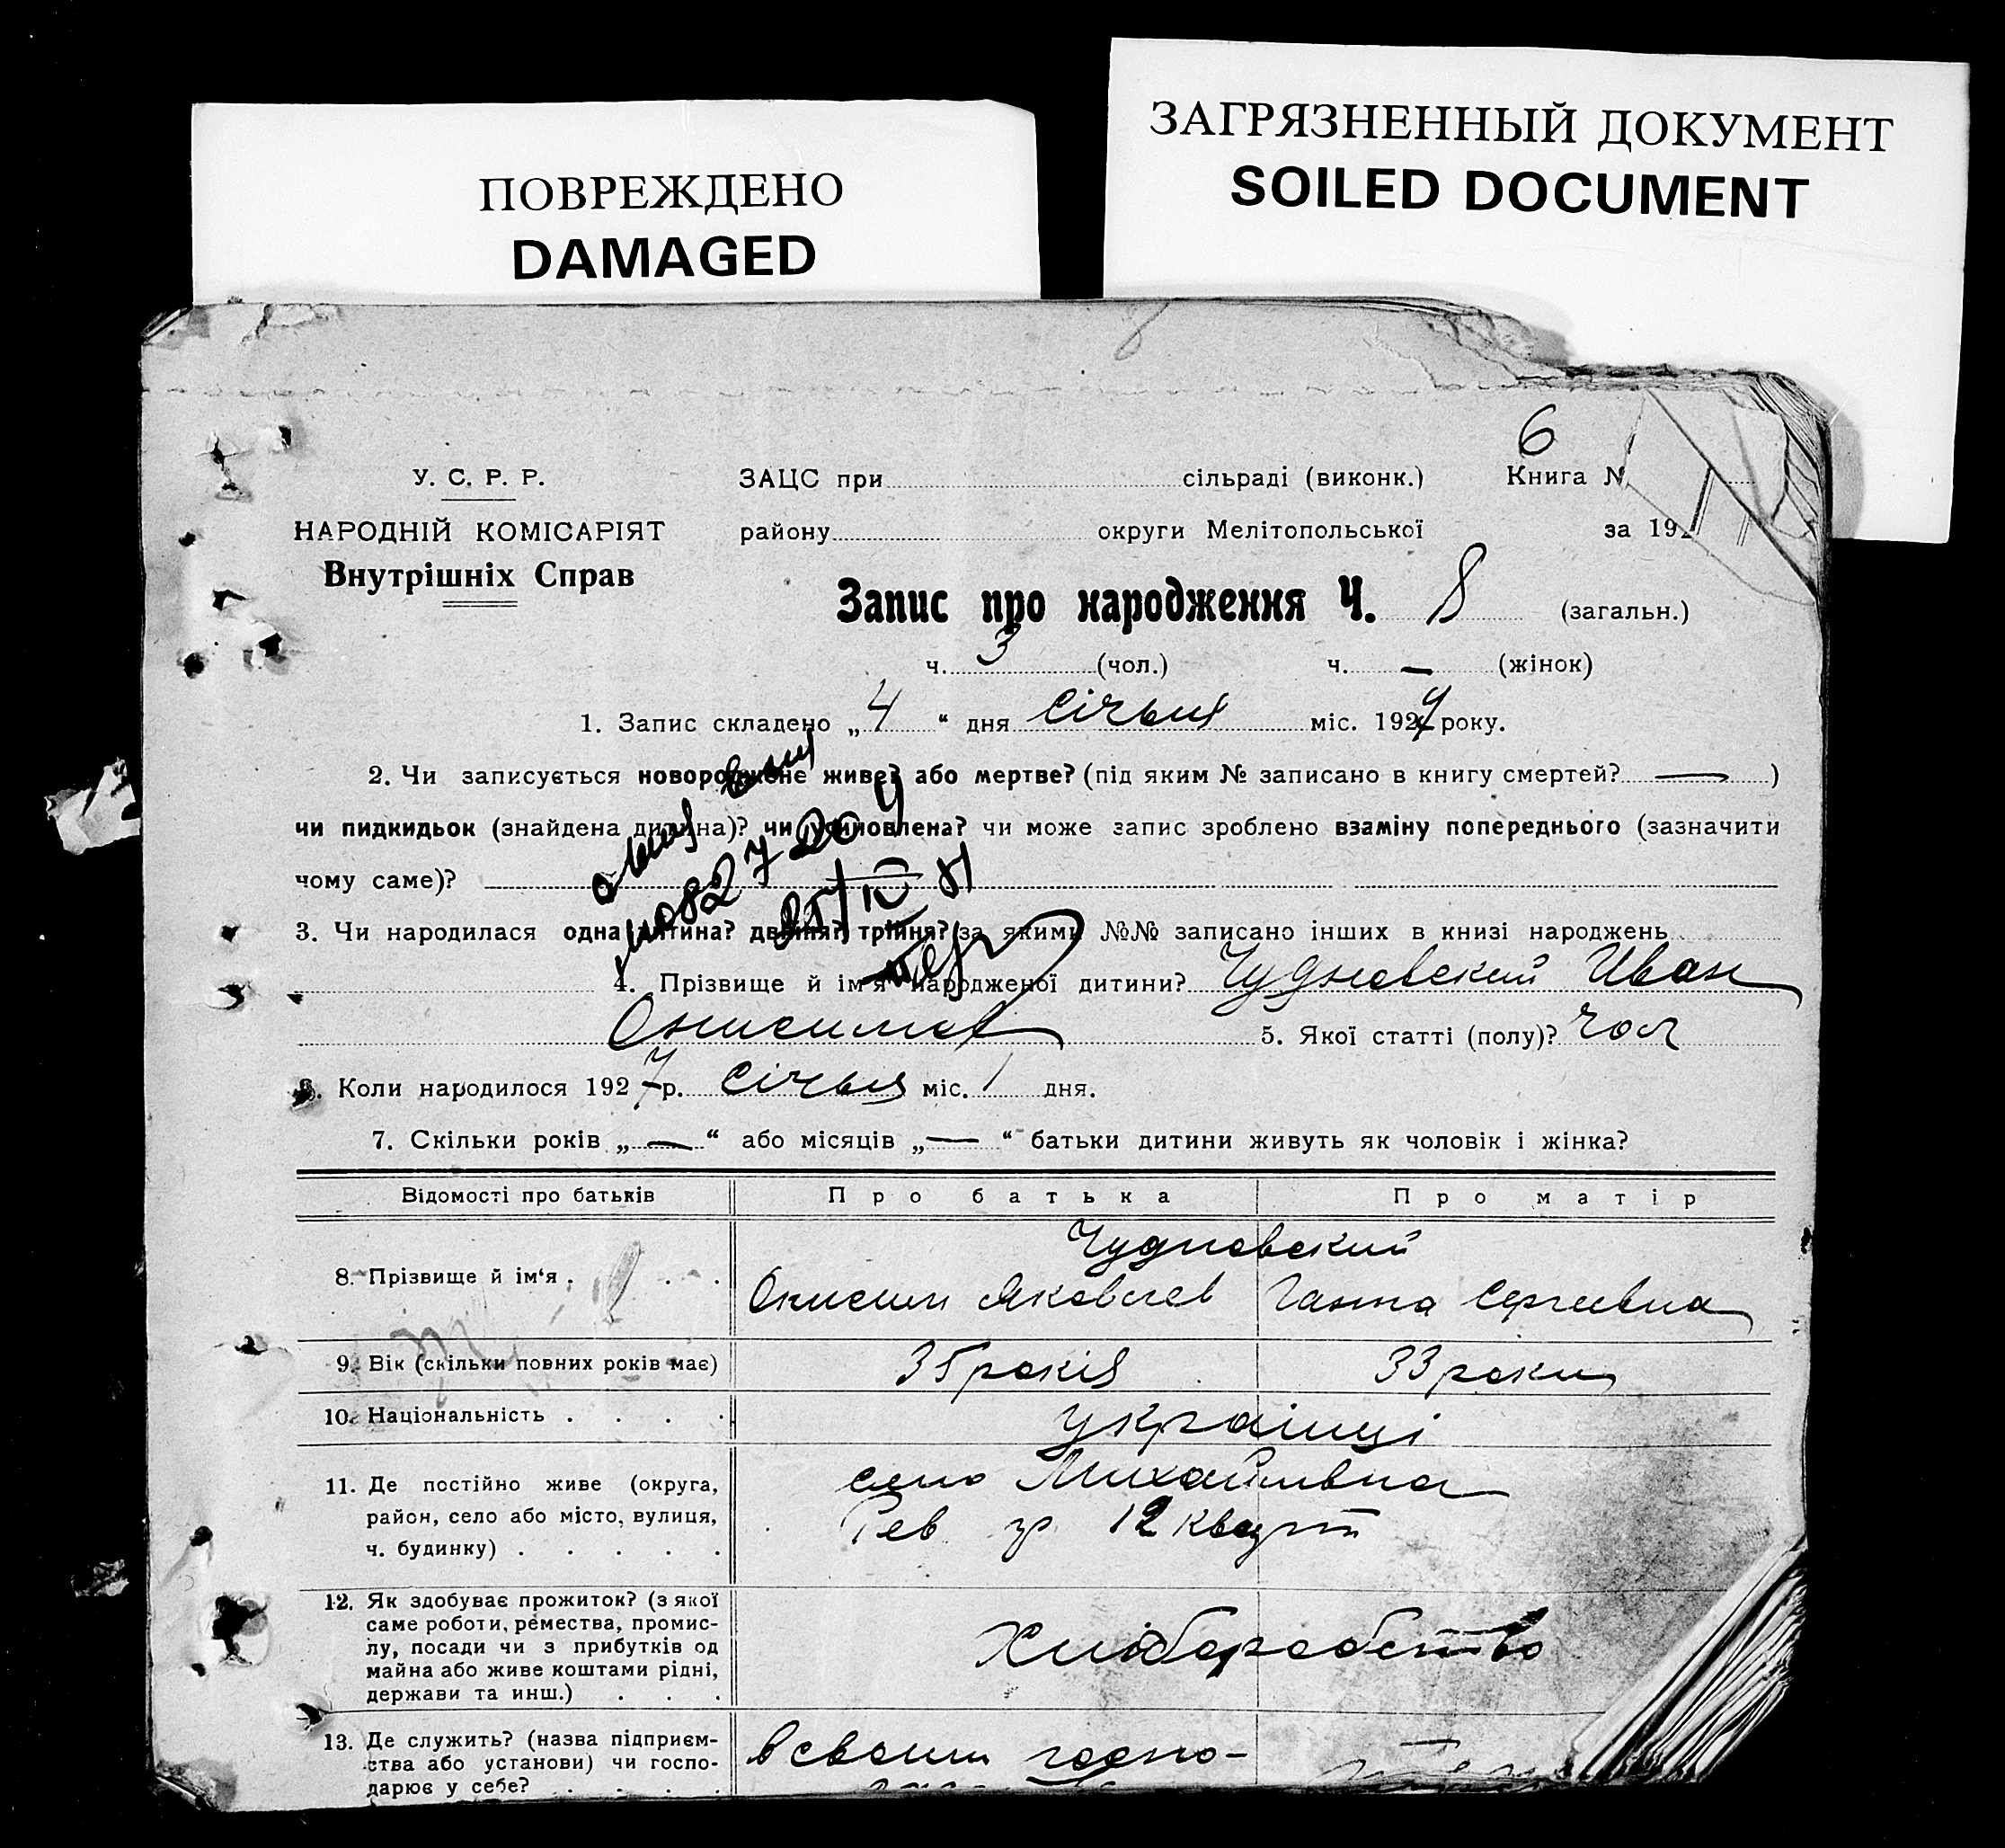 ПОВРЕЖДЕНО
DAMAGED
ЗАГРЯЗНЕННЫЙ ДОКУМЕНТ
SOILED DOCUMENT
6
У. С. Р. Р.
НАРОДНІЙ КОМІСАРІЯТ
Внутрішніх Справ
ЗАЦС при сільраді (виконк.) Книга №
району округи Мелітопольської за 192
Запис про народження Ч. 8 (загальн.)
ч. 3 (чол.) ч. — (жінок)
1. Запис складено „ 4 “ дня січня міс. 1927 року.
2. Чи записується новороджене живе? або мертве? (під яким № записано в книгу смертей? — )
чи пидкидьок (знайдена дитина)? чи усиновлена? чи може запис зроблено взаміну попереднього (зазначити
чому саме)?
3. Чи народилася одна дитина? двійня? трійня? (за якими №№ записано інших в книзі народжень
4. Прізвище й ім'я народженої дитини? Чудновский Иван
Онисимов 5. Якої статті (полу)? чол
6. Коли народилося 1927 р. січня міс. 1 дня.
7. Скільки років „ — “ або місяців „ — “ батьки дитини живуть як чоловік і жінка?
Відомості про батьків Про батька Про матір
Чудновский
8. Прізвище й ім‘я . . . Онисим Яковлев Ганна Сергеевна
9. Вік (скільки повних років має) 35 років 33 роки
10. Національність . . . . українці
11. Де постійно живе (округа, село Михайлівка
район, село або місто, вулиця, Рев 12 кварт
ч. будинку) . . . . .
12. Як здобуває прожиток? (з якої
саме роботи, ремества, промис-
лу, посади чи з прибутків од Хліборобство
майна або живе коштами рідні,
держави та инш.) . . .
13. Де служить? (назва підприєм- в своим госпо-
ства або установи) чи госпо-
дарює у себе? . . . .